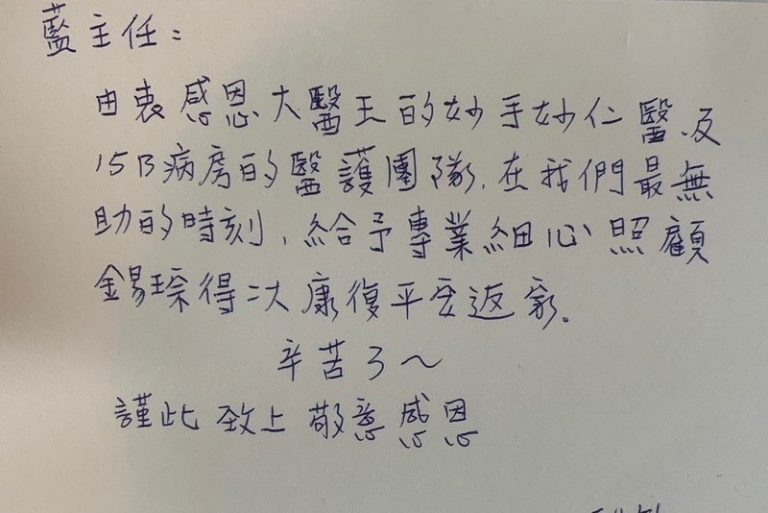 藍主任：
由衷感恩大醫王的妙手妙仁醫及
15B病房的醫護團隊，在我們最無
助的時刻，給予專業細心照顧
錫琮得二次康復平安返家。
辛苦了～
謹此致上敬意感恩